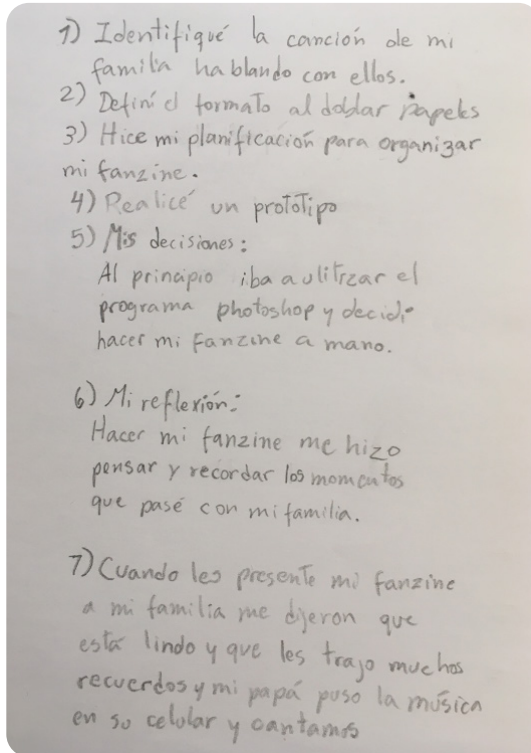 1) Identifiqué la canción de mi
familia hablando con ellos.
2) Definí el formato al doblar papeles
3) Hice mi planificación para organizar
mi fanzine.
4) Realicé un prototipo
5) Mis decisiones:
Al principio iba a ulitizar el
programa photoshop y decidí
hacer mi Fanzine a mano.
6) Mi reflexión:
Hacer mi fanzine me hizo
pensar y recordar los momentos
que pasé con mi familia.
7) Cuando les presente mi fanzine
a mi familia me dijeron que
está lindo y que les trajo muchos
recuerdos y mi papá puso la música
en su celular y cantamos